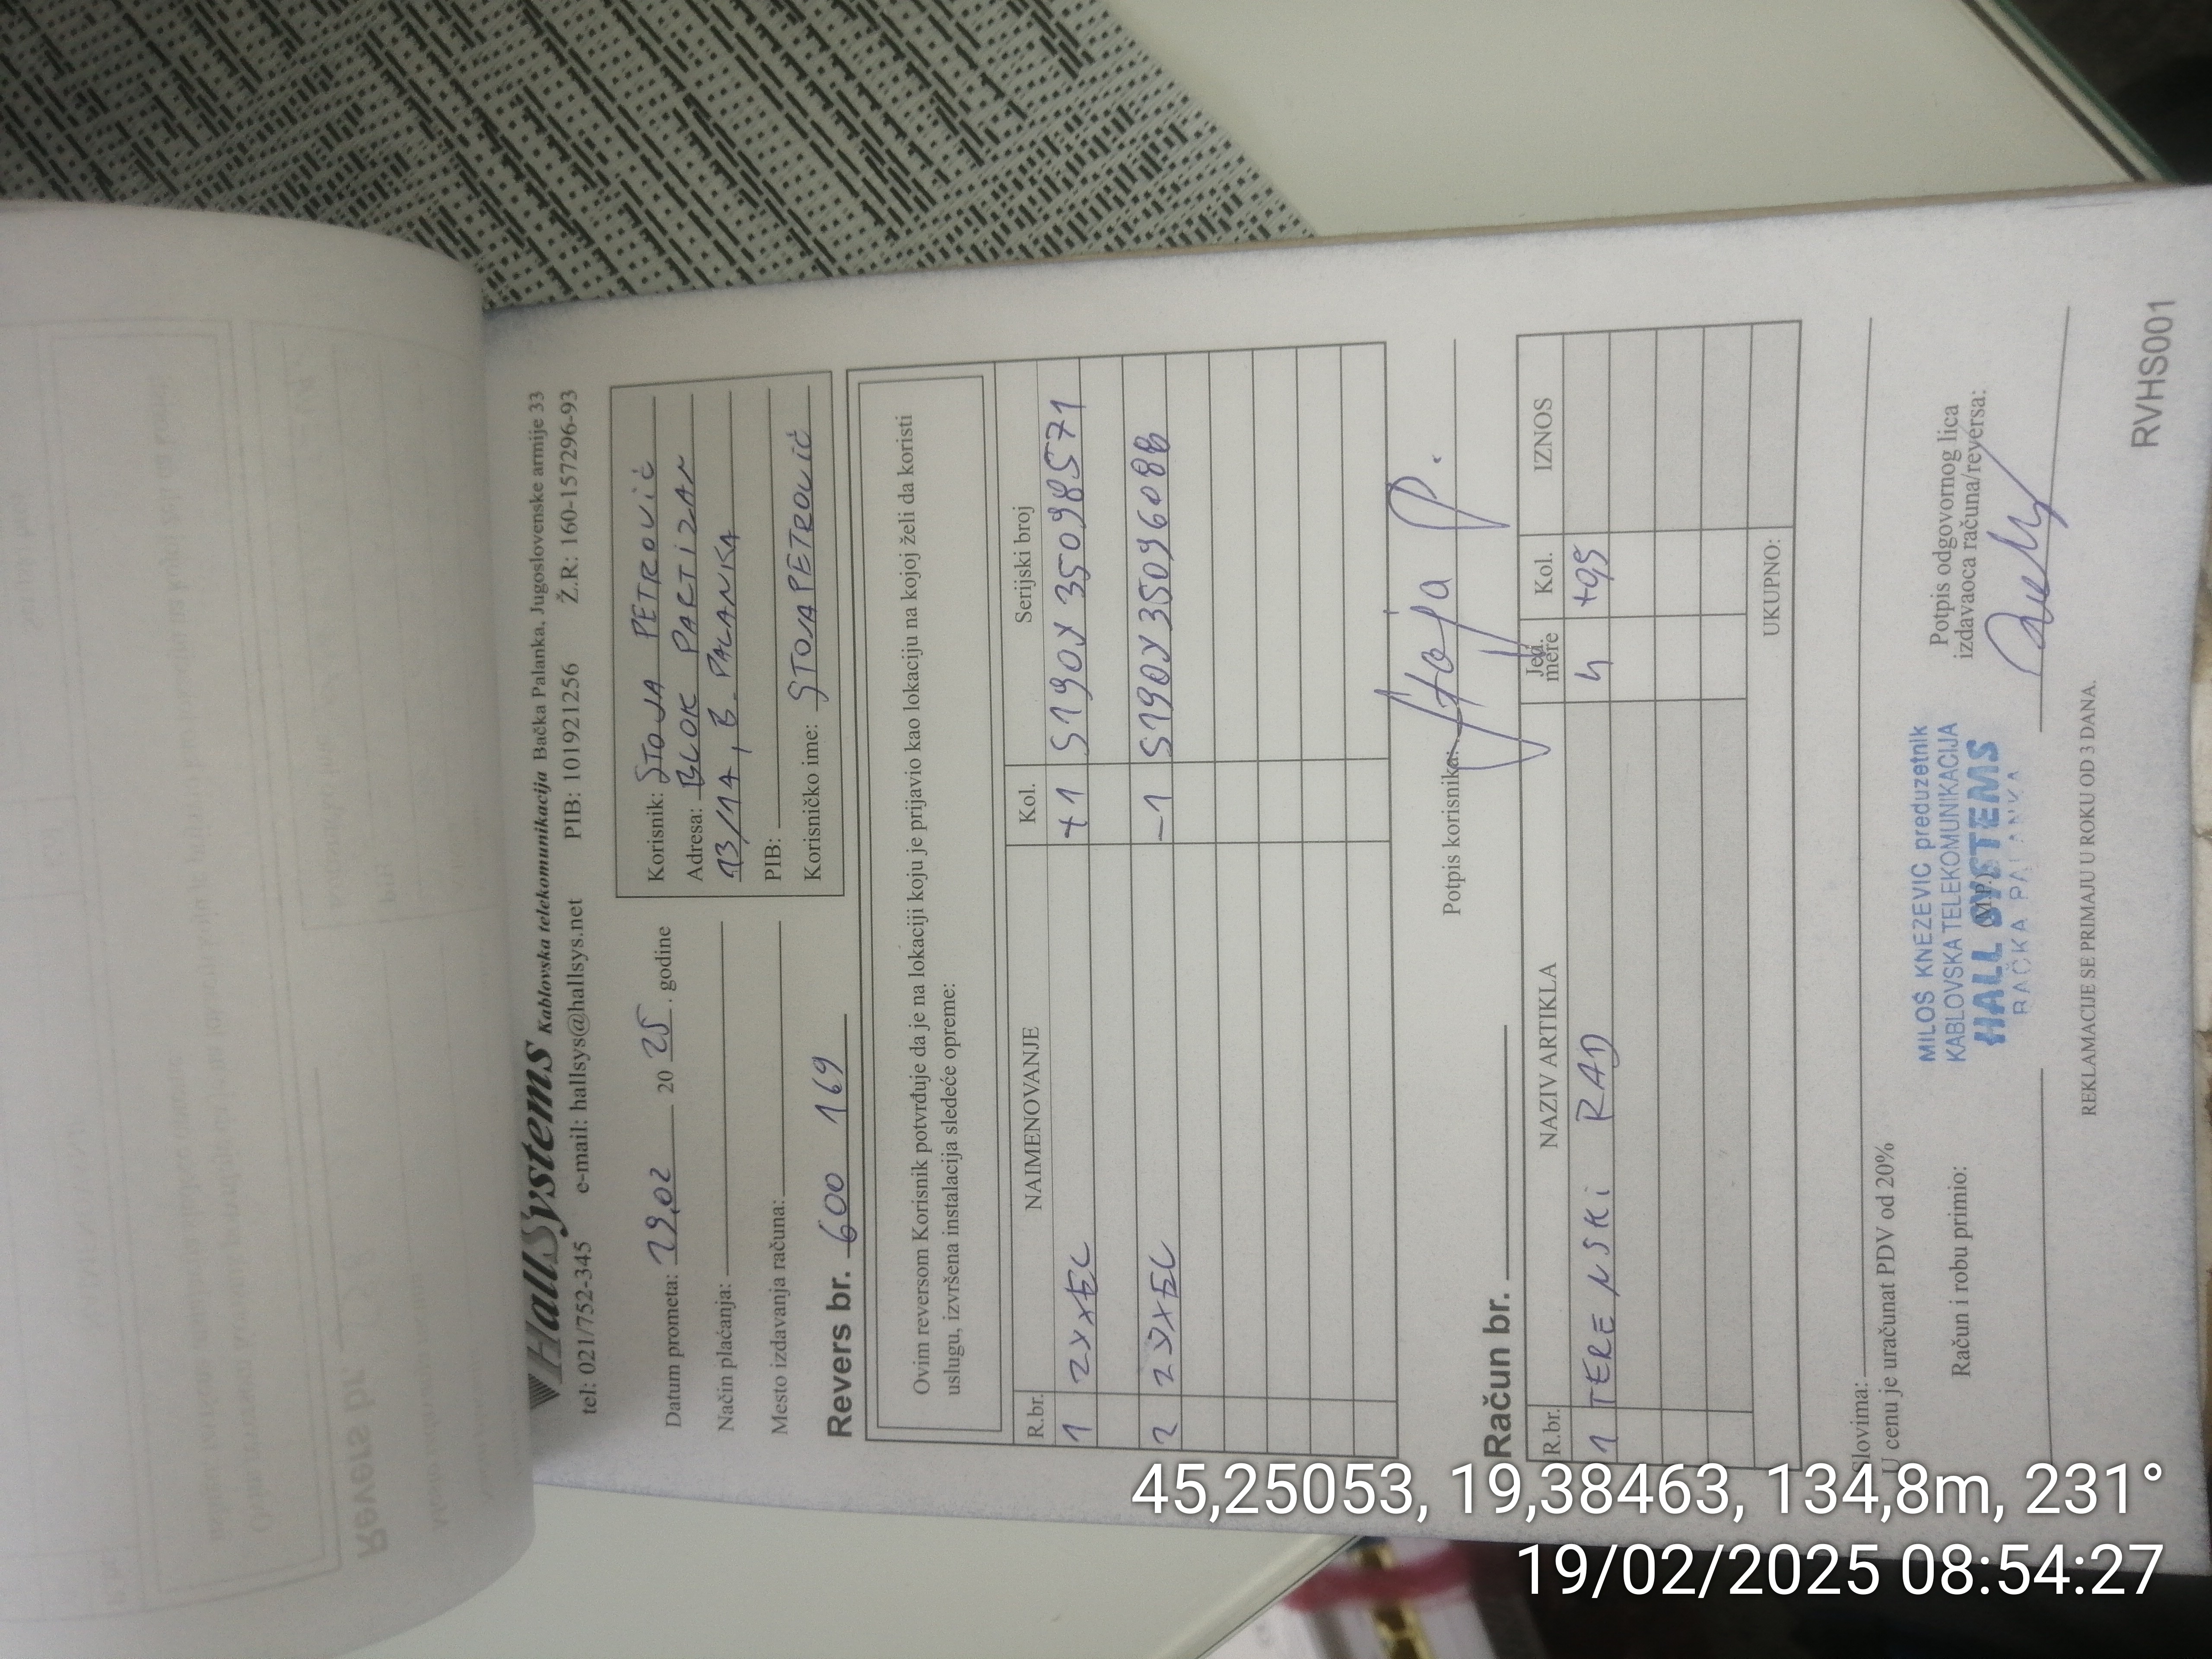 HallSystems Kablovska telekomunikacija Bačka Palanka, Jugoslovenske armije 33
tel: 021/752-345 e-mail: hallsys@hallsys.net PIB: 101921256 Ž.R.: 160-1557296-93
Datum prometa: 19,02 20 25. godine
Način plaćanja:
Mesto izdavanja računa:
Korisnik: STOJA PETROVIĆ
Adresa: BLOK PARTIZAN
13/14, B. PALANKA
PIB:
Korisničko ime: STOJAPETROVIĆ
Revers br. 600 169
Ovim reversom Korisnik potvrđuje da je na lokaciji koju je prijavio kao lokaciju na kojoj želi da koristi
uslugu, izvršena instalacija sledeće opreme:
R.br. NAIMENOVANJE Kol. Serijski broj
1 ZYXEL +1 S190Y35098571
2 ZYXEL -1 S190Y35096088
Potpis korisnika: Stoja P.
Račun br.
R.br. NAZIV ARTIKLA Jed. mere Kol. IZNOS
1 TERENSKI RAD h +0,5
UKUPNO:
Slovima:
U cenu je uračunat PDV od 20%
Račun i robu primio:
M.P.
MILOŠ KNEZEVIC preduzetnik
KABLOVSKA TELEKOMUNIKACIJA
HALL SYSTEMS
BAČKA PALANKA
Potpis odgovornog lica
izdavaoca računa/reversa:
REKLAMACIJE SE PRIMAJU U ROKU OD 3 DANA.
RVHS001
Revers br.
45,25053, 19,38463, 134,8m, 231°
19/02/2025 08:54:27